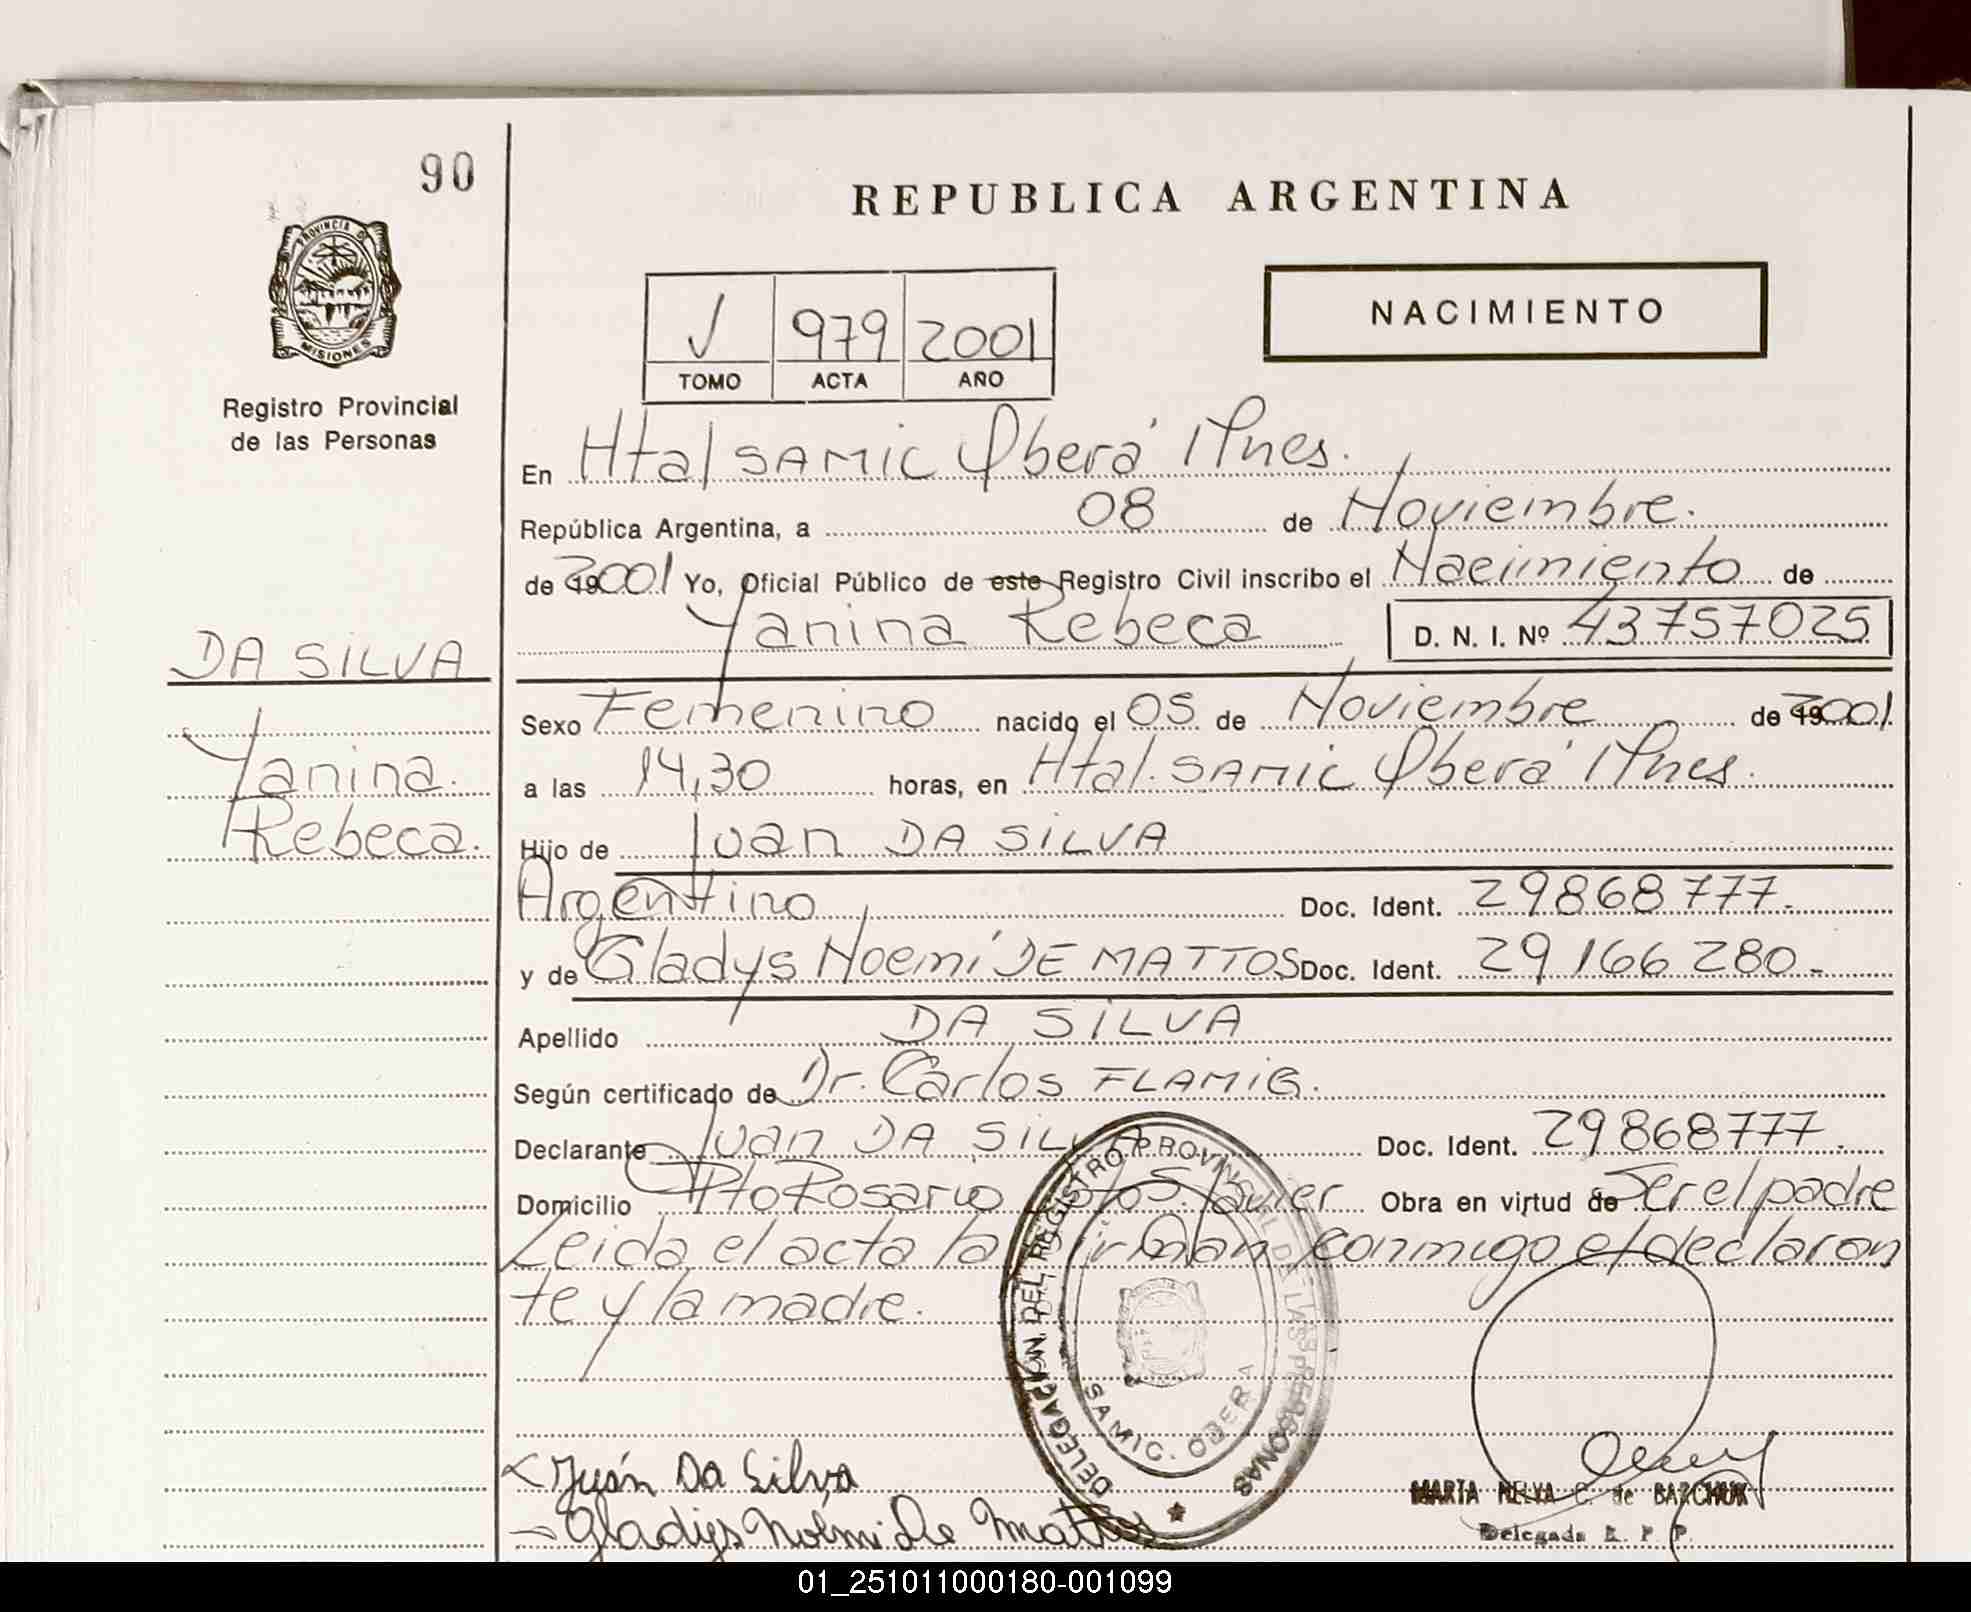 90
REPUBLICA ARGENTINA
PROVINCIA DE
MISIONES
Registro Provincial
de las Personas
979 2001
TOMO ACTA AÑO
NACIMIENTO
En Htal SAMIC Oberá Mnes.
República Argentina, a 08 de Noviembre.
de 2001 Yo, Oficial Público de este Registro Civil inscribo el Nacimiento de
Yanina Rebeca D. N. I. Nº 43757025
DA SILVA
Yanina.
Rebeca.
Sexo Femenino nacido el 05 de Noviembre de 2001
a las 14,30 horas, en Htal. SAMIC Oberá Mnes.
Hijo de Juan DA SILVA
Argentino Doc. Ident. 29868777.
y de Gladys Noemí DE MATTOS Doc. Ident. 29166280.
Apellido DA SILVA
Según certificado de Dr. Carlos FLAMIG.
Declarante Juan DA SILVA Doc. Ident. 29868777.
Domicilio Pto Rosario Javier Obra en virtud de Ser el padre
Leida el acta la firman conmigo el declaran
te y la madre.
DELEGACION DEL REGISTRO PROVINCIAL DE LAS PERSONAS
SAMIC. OBERA
Juán Da Silva
Gladys Noemi De Mattos
MARTA NELVA C. de BARCHUK
Delegada R. P. P.
01_251011000180-001099